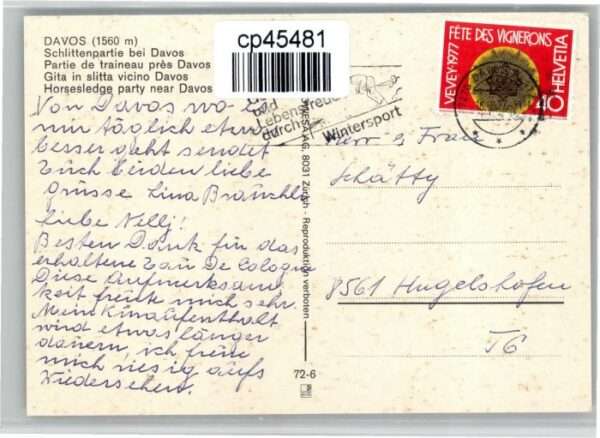 DAVOS (1560 m)
Schlittenpartie bei Davos
Partie de traineau près Davos
Gita in slitta vicino Davos
Horsesledge party near Davos
cp45481
und
Lebens freude
durch Wintersport
FÊTE DES VIGNERONS
VEVEY·1977
HELVETIA
40
Von Davos wo
mir täglich etw
besser geht sendet
Euch beiden liebe
grüsse Lina
Liebe Nelly!
Besten Dank für das
erhaltene Eau De Cologne
Diese Aufmerksam
keit freute mich sehr.
Mein Kuraufenthalt
wird etwas länger
dauern, ich freue
mich riesig aufs
Wiedersehen.
AG, 8031 Zürich - Reproduktion verboten
72-6
Herr & Frau
Schätty
8561 Hugelshofen
TG